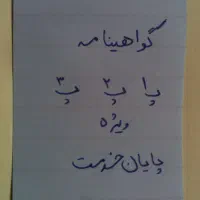 گواهینامه
پ۱ پ۲ پ۳
ویژه
پایان خدمت